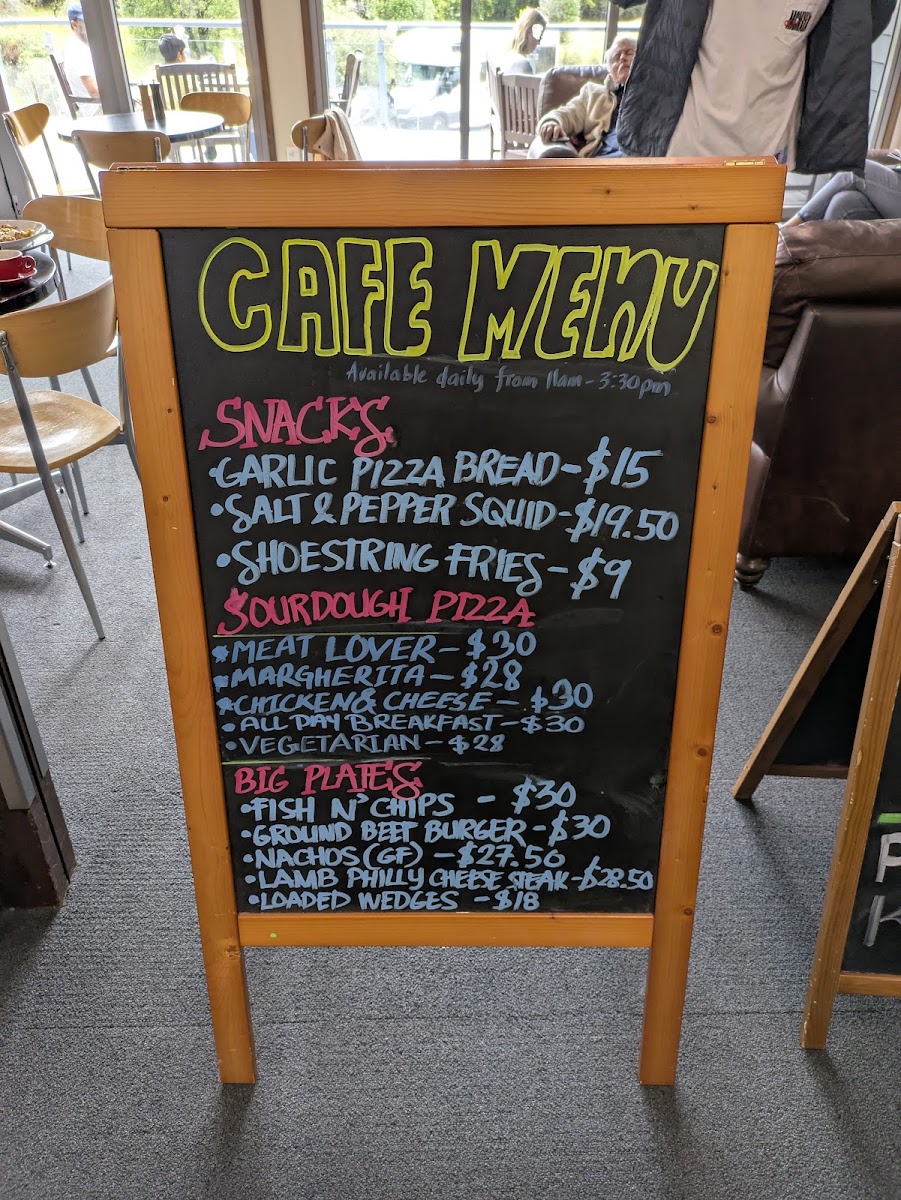 CAFE MENU
Available daily from 11am - 3:30pm
SNACKS
•GARLIC PIZZA BREAD - $15
•SALT & PEPPER SQUID - $19.50
•SHOESTRING FRIES - $9
SOURDOUGH PIZZA
•MEAT LOVER - $30
•MARGHERITA - $28
•CHICKEN & CHEESE - $30
•ALL DAY BREAKFAST - $30
•VEGETARIAN - $28
BIG PLATES
•FISH N' CHIPS - $30
•GROUND BEEF BURGER - $30
•NACHOS (GF) - $27.50
•LAMB PHILLY CHEESE STEAK - $28.50
•LOADED WEDGES - $18